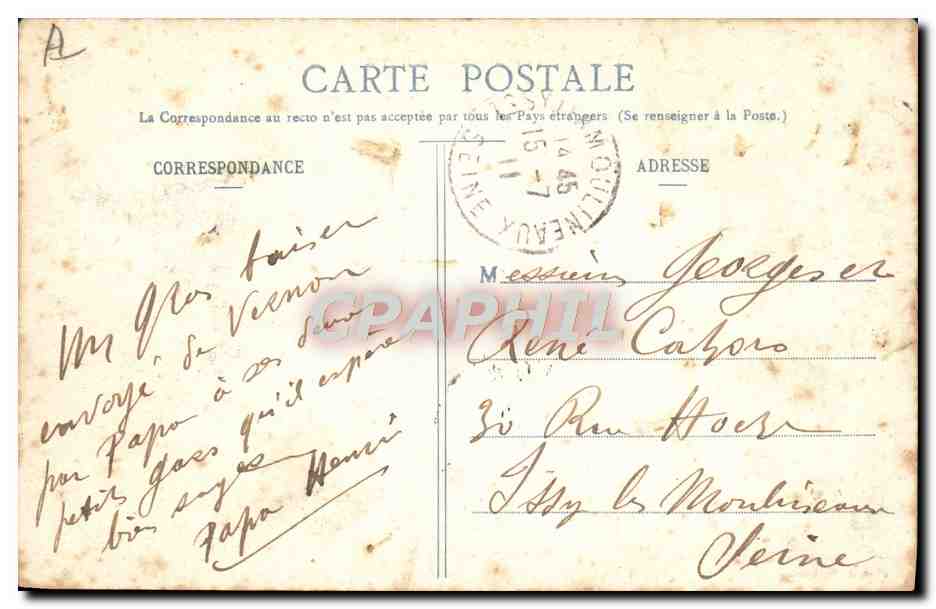 A
CARTE POSTALE
La Correspondance au recto n'est pas acceptée par tous les Pays étrangers (Se renseigner à la Poste.)
CORRESPONDANCE
ADRESSE
ISSY-LES-MOULINEAUX
14 45
15 -7
11
SEINE
Un Gros baiser
envoyé de Vernon
par Papa à ses deux
petits gars qu'il espère
bien sages
Papa Henri
Messieurs Georges et
René Cahors
30 Rue Hoche
Issy les Moulineaux
Seine
CPAPHIL